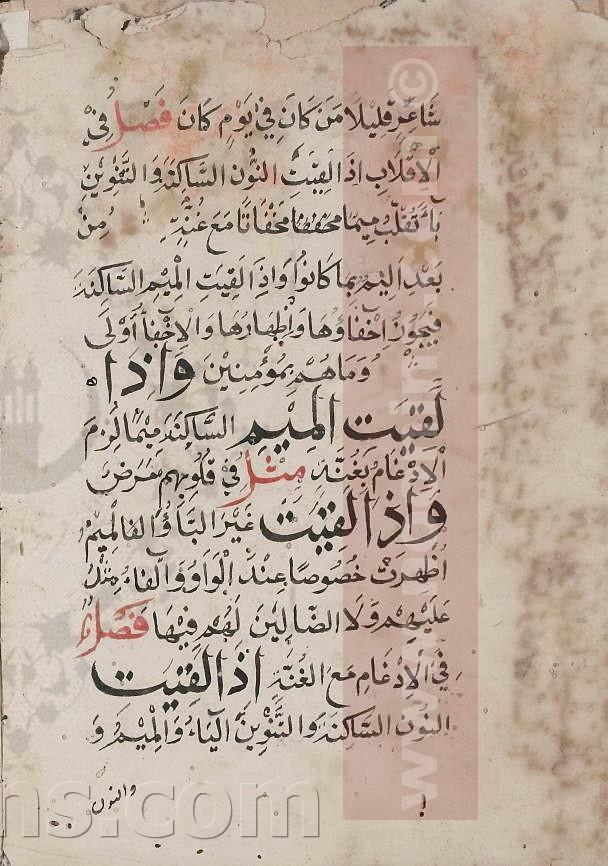 شَاعِرٍ قَلِيلًا مَن كَانَ فِي يَوْمٍ كَانَ فَصْلٌ فِي
الْاِقْلَابِ اِذَا لَقِيَتْ النُّون السَّاكِنَةَ وَالتَّنْوِينِ
بَاءً تُقْلَبُ مِيمًا مَعَ غُنَّةٍ مِنْ
بَعْدِ اَلِيمٍ بِمَا كَانُوا وَاِذَا لَقِيَتِ الْمِيمِ السَّاكِنَةَ
فَيَجُوزُ اِخْفَاؤُهَا وَاِظْهَارُهَا وَالْاِخْفَاءُ اَوْلَى
وَمَا هُمْ بِمُؤْمِنِينَ وَاِذَا
لَقِيَت الْمِيْمِ السَّاكِنَةَ مِيْمًا لَزِمَ
الْاِدْغَام بِغُنَّةٍ مِثْلُ فِي قُلُوبِهِم مَرَضٌ
وَاِذَا لَقِيَتْ غَيْرَ الْبَاءِ وَالْمِيْمِ
اُظْهِرَتْ خُصُوصًا عِنْدَ الْوَاوِ وَالْفَاءِ مِثْلُ
عَلَيْهِمْ وَلَا الضَّالِّينَ لَهُمْ فِيهَا فَصْلٌ
فِي الْاِدْغَامِ مَعَ الْغُنَّةِ اِذَا لَقِيَتْ
النُّون السَّاكِنَةَ وَالتَّنْوِينَ الْيَاءُ وَالْمِيْمُ وَ
والنون
ns.com